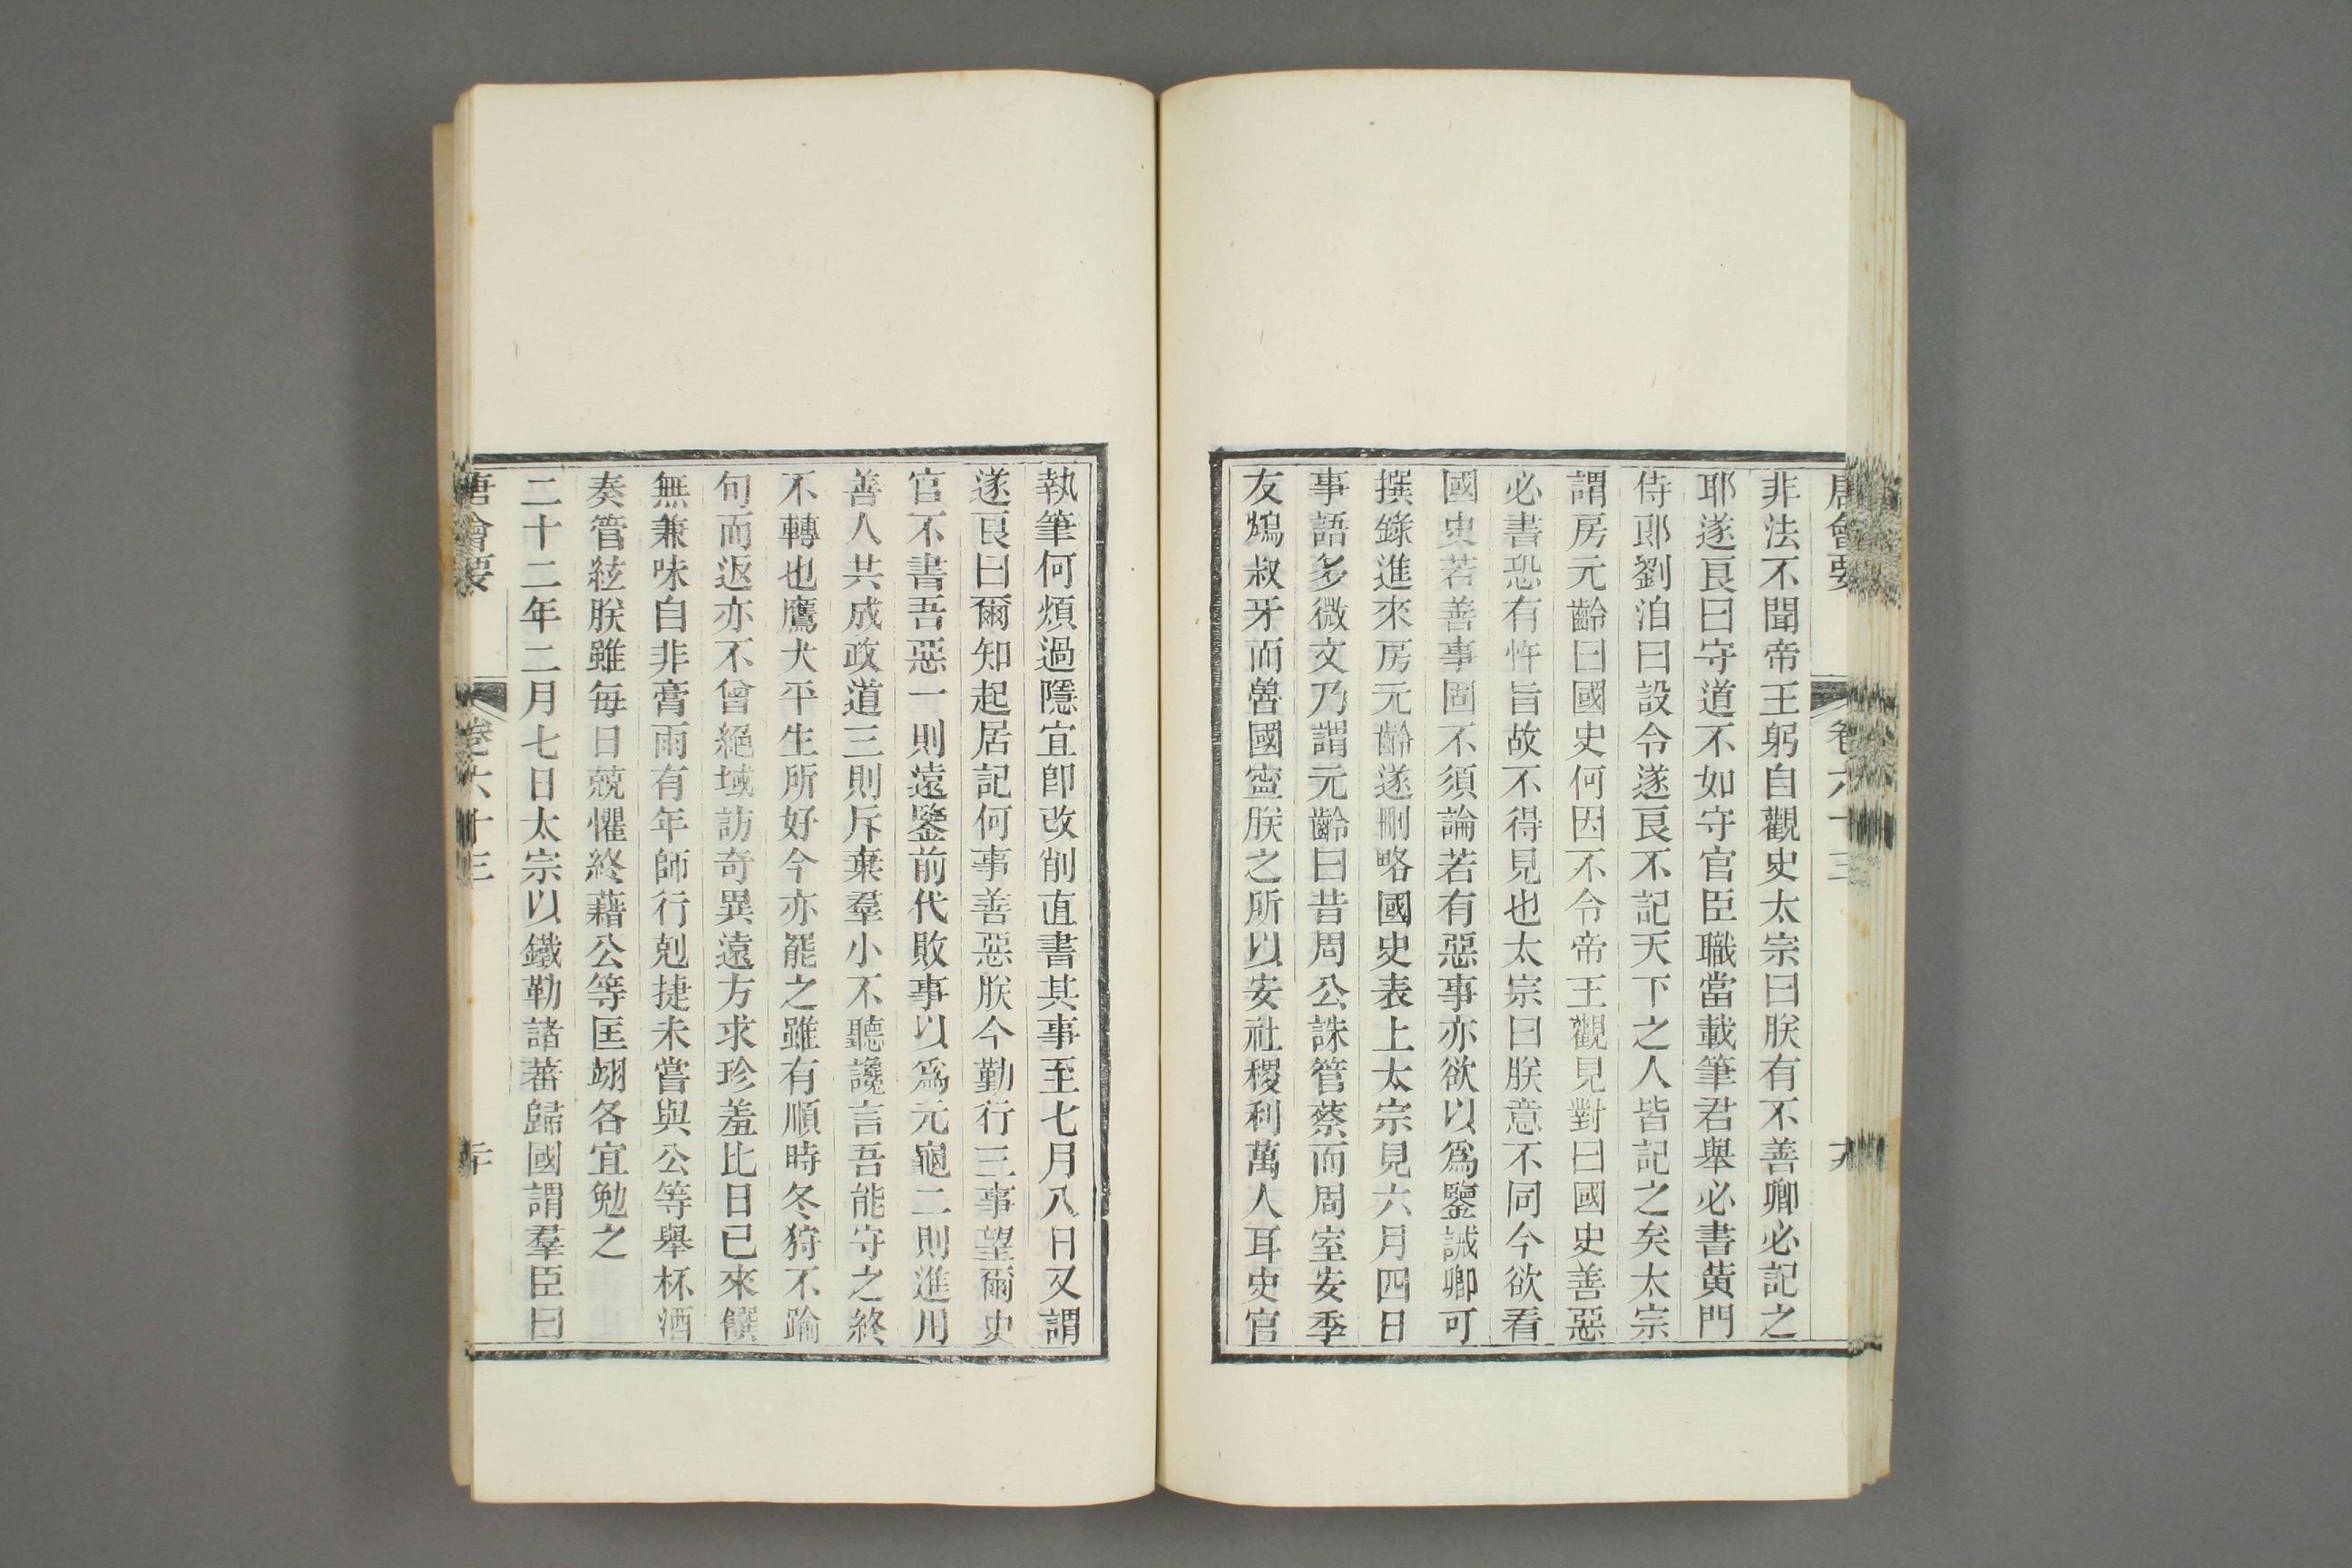 唐會要 卷六十三
非法不聞帝王躬自觀史太宗曰朕有不善卿必記之
耶遂良曰守道不如守官臣職當載筆君舉必書黃門
侍郎劉洎曰設令遂良不記天下之人皆記之矣太宗
謂房元齡曰國史何因不令帝王觀見對曰國史善惡
必書恐有忤旨故不得見也太宗曰朕意不同今欲看
國史若善事固不須論若有惡事亦欲以爲鑒誡卿可
撰錄進來房元齡遂刪略國史表上太宗見六月四日
事語多微文乃謂元齡曰昔周公誅管蔡而周室安季
友鴆叔牙而魯國寧朕之所以安社稷利萬人耳史官
執筆何煩過隱宜卽改削直書其事至七月八日又謂
遂良曰爾知起居記何事善惡朕今勤行三事望爾史
官不書吾惡一則遠鑒前代敗事以爲元龜二則進用
善人共成政道三則斥棄羣小不聽讒言吾能守之終
不轉也鷹犬平生所好今亦罷之雖有順時冬狩不踰
旬而返亦不曾絕域訪奇異遠方求珍羞比日已來饌
無兼味自非膏雨有年師行剋捷未嘗與公等舉杯酒
奏管絃朕雖每日兢懼終藉公等匡翊各宜勉之
二十二年二月七日太宗以鐵勒諸蕃歸國謂羣臣曰
唐會要 卷六十三